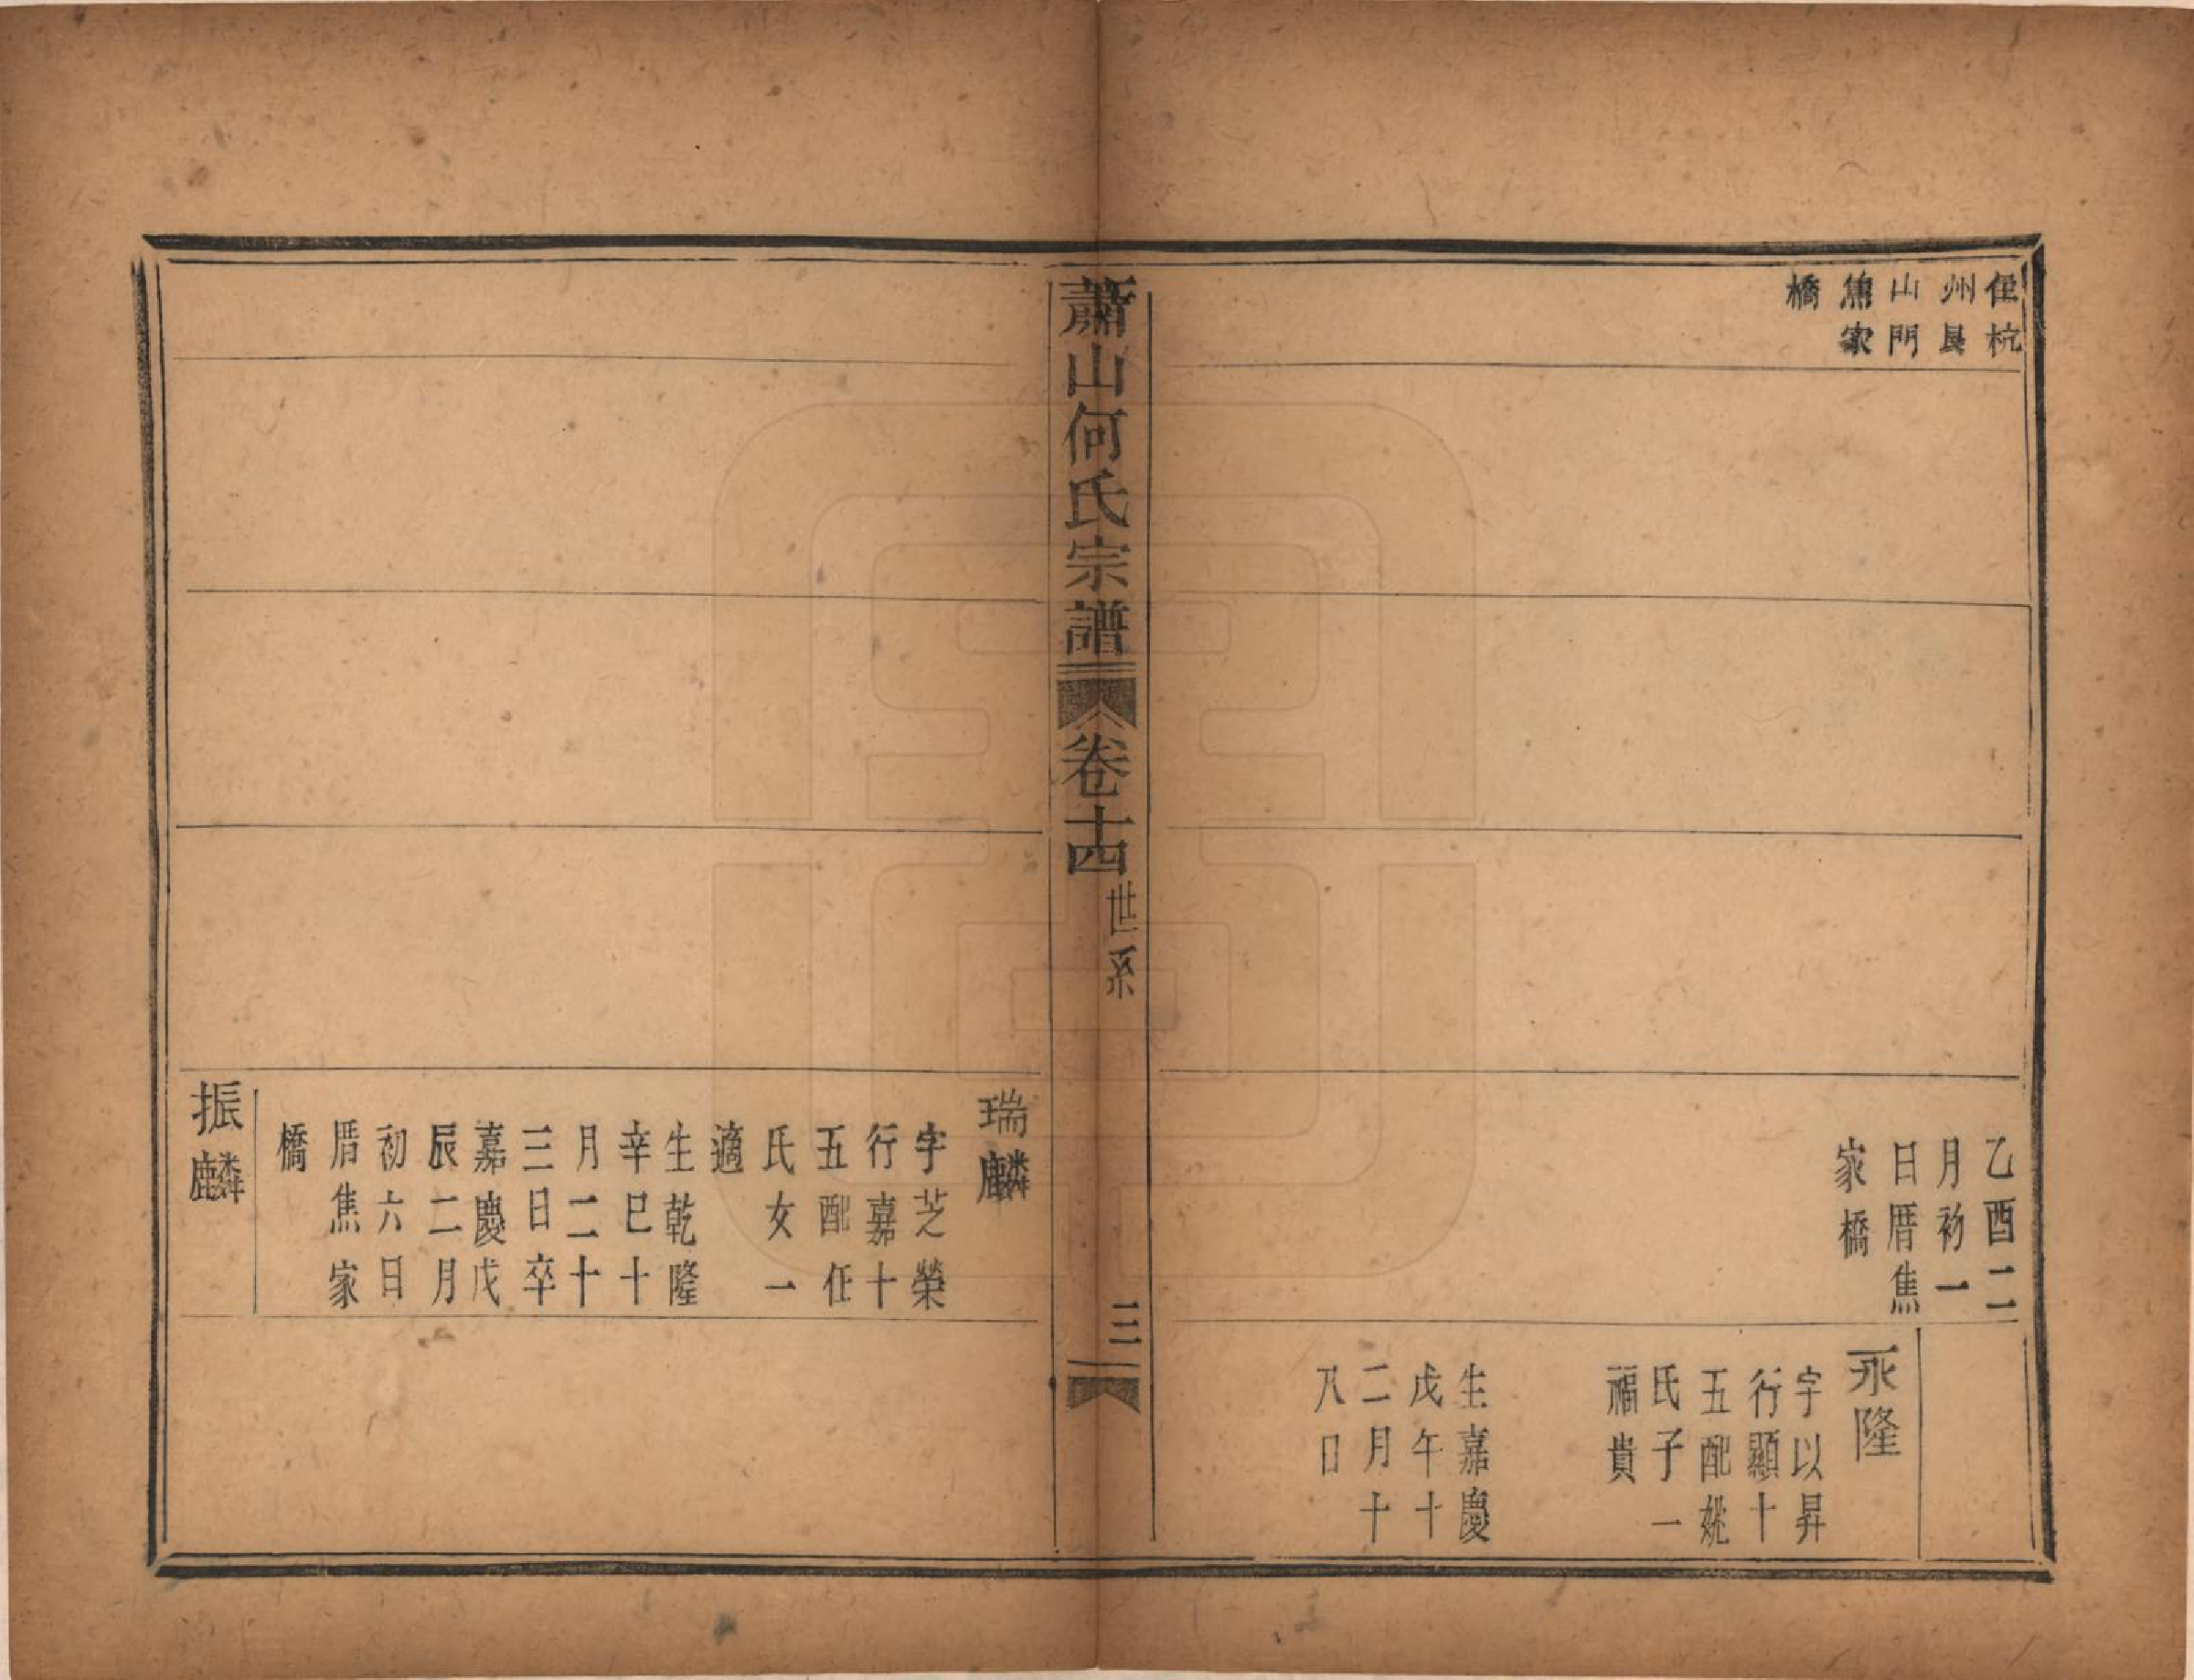 住杭
州艮
山門
焦家
橋
乙酉二
月初一
日厝焦
家橋
永隆
字以昇
行顯十
五配姚
氏子一
福貴
生嘉慶
戊午十
二月十
八日
蕭山何氏宗譜
卷十四
世系
三
瑞麟
字芝榮
行嘉十
五配任
氏女一
適
生乾隆
辛巳十
月二十
三日卒
嘉慶戊
辰二月
初六日
厝焦家
橋
振麟